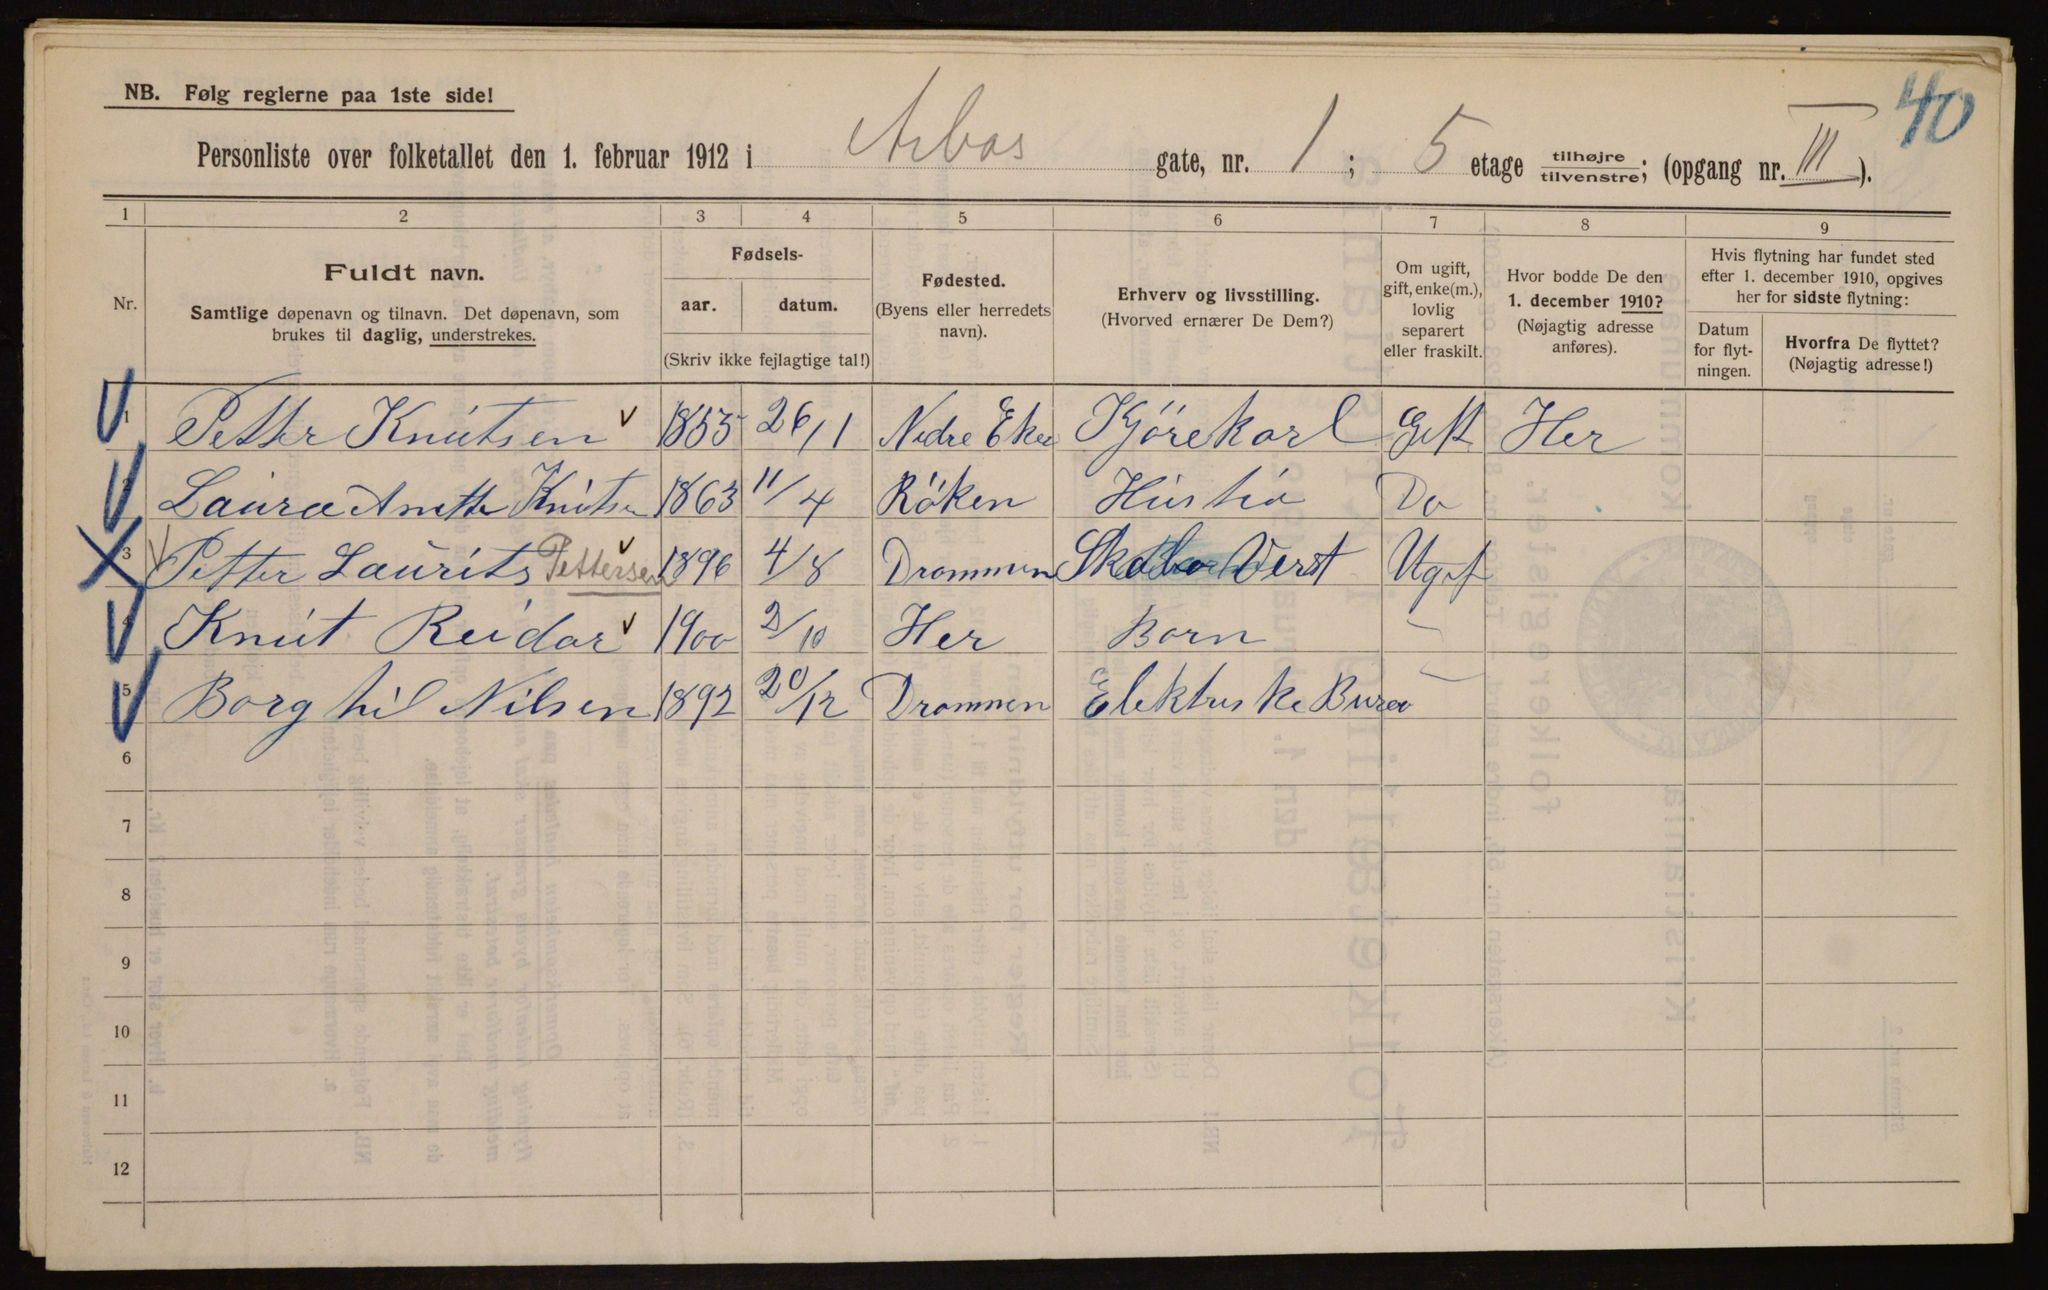 40
NB. Følg reglerne paa 1ste side!
Personliste over folketallet den 1. februar 1912 i Arbos gate, nr. 1 ; 5 etage tilhøjre/tilvenstre; (opgang nr. III ).
1 2 3 4 5 6 7 8 9
Nr.
Fuldt navn.
Samtlige døpenavn og tilnavn. Det døpenavn, som
brukes til daglig, understrekes.
Fødsels-
aar. datum.
(Skriv ikke fejlagtige tal!)
Fødested.
(Byens eller herredets
navn).
Erhverv og livsstilling.
(Hvorved ernærer De Dem?)
Om ugift,
gift, enke(m.),
lovlig
separert
eller fraskilt.
Hvor bodde De den
1. december 1910?
(Nøjagtig adresse
anføres).
Hvis flytning har fundet sted
efter 1. december 1910, opgives
her for sidste flytning:
Datum
for flyt-
ningen.
Hvorfra De flyttet?
(Nøjagtig adresse!)
1 Petter Knutsen 1855 26/1 Nedre Eker Kjørekarl Gift Her
2 Laura Anette Knutsen 1863 11/4 Röken Hustru Do
3 Petter Laurits Pettersen 1896 4/8 Drammen Ugif
4 Knut Reidar 1900 2/10 Her Barn
5 Borghil Nilsen 1892 20/12 Drammen Elektriske Bureo
6
7
8
9
10
11
12